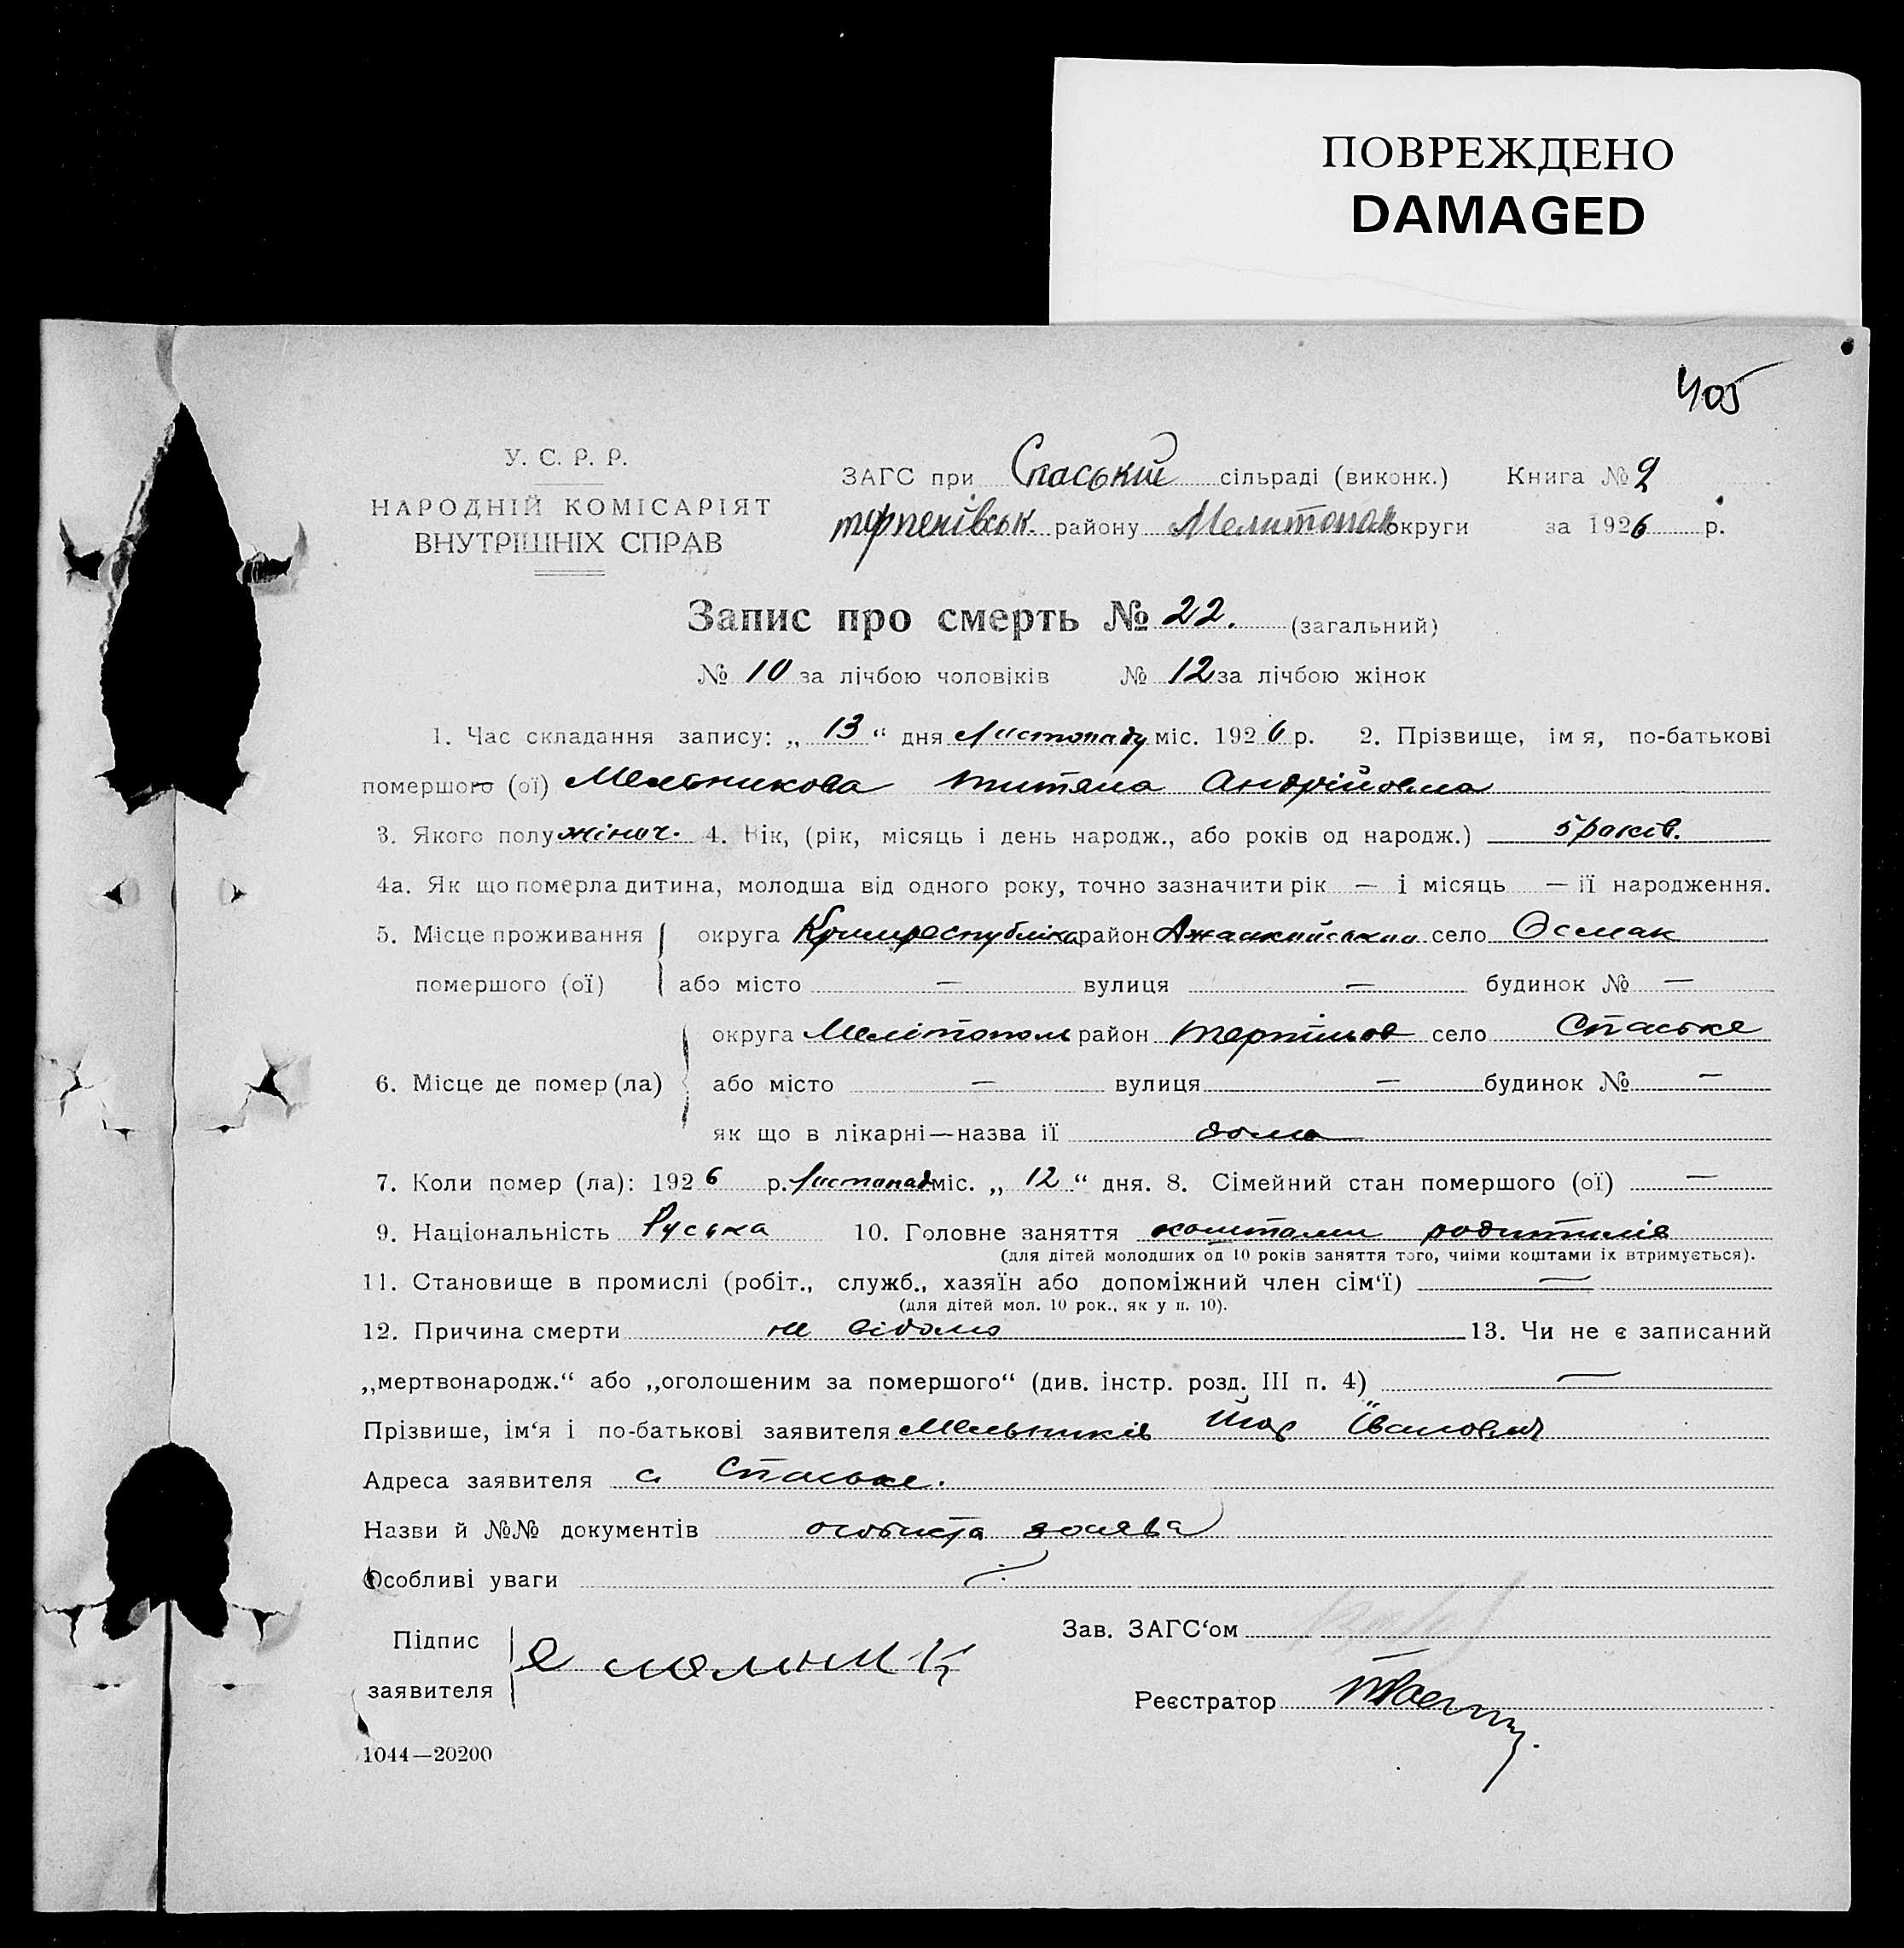 ПОВРЕЖДЕНО
DAMAGED
405
У. С. Р. Р.
НАРОДНІЙ КОМІСАРІЯТ
ВНУТРІШНІХ СПРАВ
ЗАГС при Спаській сільраді (виконк.) Книга № 2
терпенівськ. району Мелитопол округи за 1926 р.
Запис про смерть № 22. (загальний)
№ 10 за лічбою чоловіків № 12 за лічбою жінок
1. Час складання запису: „ 13 “ дня Листопаду міс. 1926 р. 2. Прізвище, імя, по-батькові
помершого (ої) Мельникова Титяна Андрійовна
3. Якого полу жіноч. 4. Вік, (рік, місяць і день народж., або років од народж.) 5 років.
4а. Як що померла дитина, молодша від одного року, точно зазначити рік — і місяць — її народження.
5. Місце проживання округа Кримреспубліка район Джанкойський село Осмак
помершого (ої) або місто — вулиця — будинок № —
округа Мелітополь район село Спаське
6. Місце де помер (ла) або місто — вулиця — будинок № —
як що в лікарні—назва її дома
7. Коли помер (ла): 1926 р. Листопад міс. „ 12 “ дня. 8. Сімейний стан помершого (ої) —
9. Національність Руська 10. Головне заняття коштами родителів
(для дітей молодших од 10 років заняття того, чиїми коштами їх втримується).
11. Становище в промислі (робіт., служб., хазяїн або допоміжний член сім‘ї) —
(для дітей мол. 10 рок., як у п. 10).
12. Причина смерти не відомо 13. Чи не є записаний
„мертвонародж.“ або „оголошеним за помершого“ (див. інстр. розд. III п. 4) —
Прізвише, ім‘я і по-батькові заявителя Мельників Івановіч
Адреса заявителя с. Спаське.
Назви й №№ документів особиста заява
Особливі уваги
Підпис
заявителя
Зав. ЗАГС‘ом
Реєстратор
1044—20200